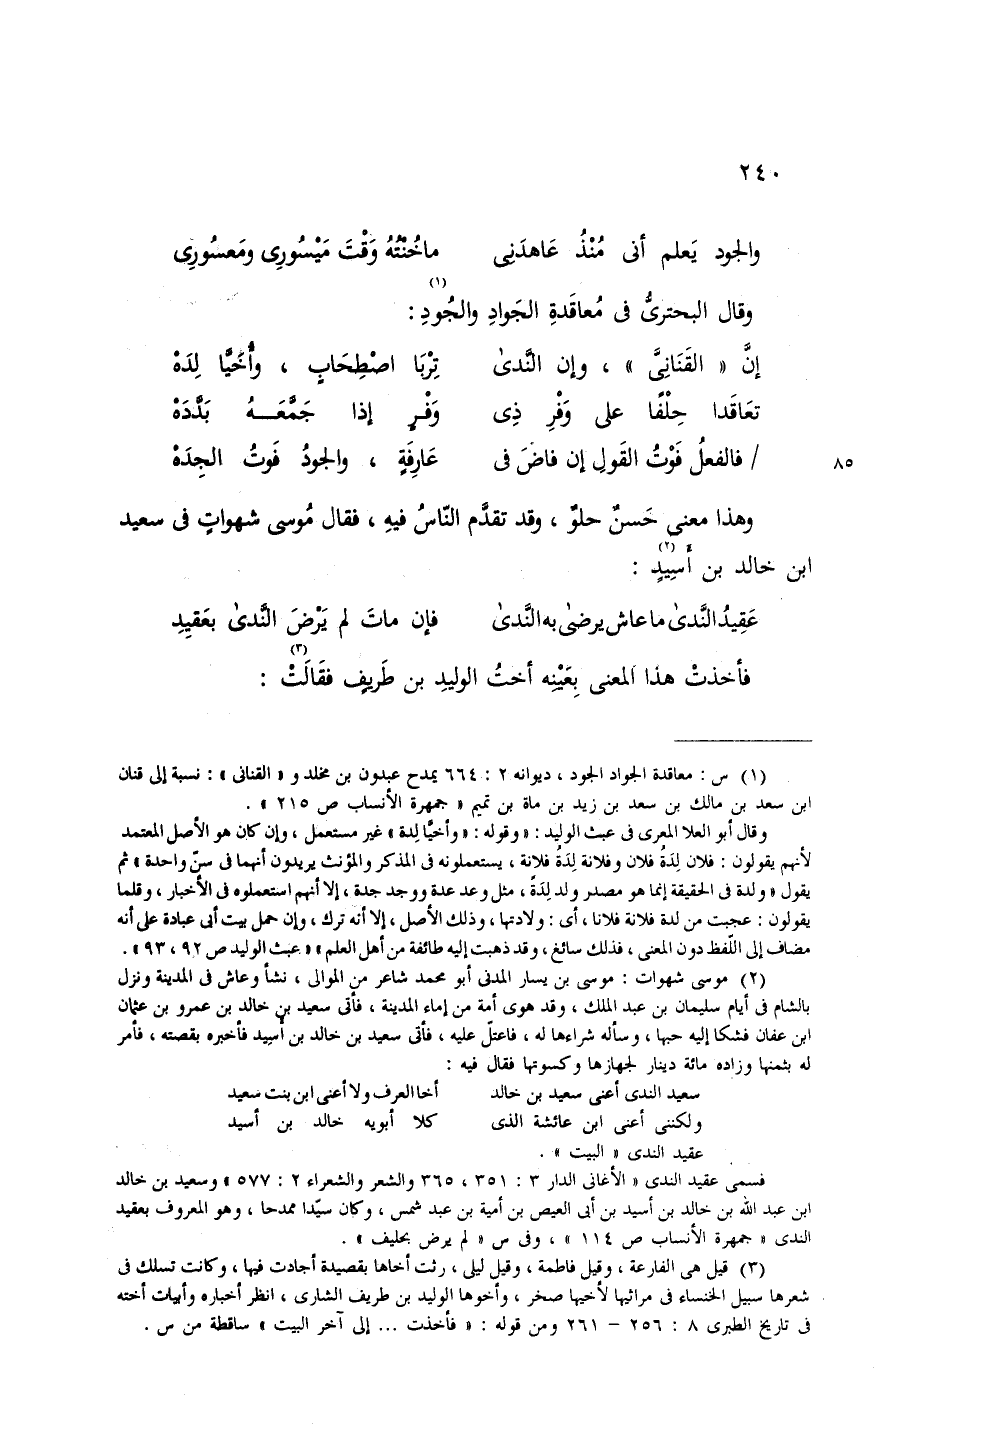 ٢٤٠
والجود يَعلم أنى مُنْذُ عَاهدَنِى ماخُنْتُهُ وَقْتَ مَيْسُورِى ومَعسُورِى
وقال البحترىُّ فى مُعاقَدةِ الجَوادِ والجُودِ (١) :
إنَّ « القَنَانِىَّ » ، وإن النَّدىٰ تِرْبَا اصْطِحَابٍ ، وأُخَيَّا لِدَهْ
تعَاقَدا حِلْفًا على وَفْرِ ذِى وَفْرٍ إذا جَمَّعَـــهُ بَدَّدَهْ
/ فالفعلُ فَوْتُ القَولِ إن فاضَ فى عَارِفَةٍ ، والجودُ فَوتُ الجِدَهْ
٨٥
وهذا معنى حَسنٌ حلوٌ ، وقد تقدَّم النّاسُ فيهِ ، فقال مُوسى شهواتٍ فى سعيد
ابن خالد بن أَسِيدٍ (٢) :
عَقِيدُ النَّدىٰ ما عاش يرضىٰ به النَّدىٰ فإن ماتَ لم يَرْضَ النَّدىٰ بعَقيدِ
فأخذتْ هذا المعنى بِعَيْنِه أختُ الوليدِ بن طَريفٍ فقَالَتْ (٣) :
(١) س : معاقدة الجواد الجود ، ديوانه ٢ : ٦٦٤ يمدح عبدون بن مخلد و « القنانى » : نسبة إلى قنان
ابن سعد بن مالك بن سعد بن زيد بن ماة بن تميم « جمهرة الأنساب ص ٢١٥ » .
وقال أبو العلا المعرى فى عبث الوليد : « وقوله : « وأخيَّا لِدة » غير مستعمل ، وإن كان هو الأصل المعتمد
لأنهم يقولون : فلان لِدَةُ فلان وفلانة لِدَةُ فلانة ، يستعملونه فى المذكر والمؤنث يريدون أنهما فى سنّ واحدة » ثم
يقول « ولدة فى الحقيقة إنما هو مصدر ولد لِدَةً ، مثل وعد عدة ووجد جدة ، إلا أنهم استعملوه فى الأخبار ، وقلما
يقولون : عجبت من لدة فلانة فلانا ، أى : ولادتها ، وذلك الأصل ، إلا أنه ترك ، وإن حمل بيت أبى عبادة على أنه
مضاف إلى اللّفظ دون المعنى ، فذلك سائغ ، وقد ذهبت إليه طائفة من أهل العلم » « عبث الوليد ص ٩٢ ، ٩٣ » .
(٢) موسى شهوات : موسى بن يسار المدنى أبو محمد شاعر من الموالى ، نشأ وعاش فى المدينة ونزل
بالشام فى أيام سليمان بن عبد الملك ، وقد هوى أمة من إماء المدينة ، فأتى سعيد بن خالد بن عمرو بن عثمان
ابن عفان فشكا إليه حبها ، وسأله شراءها له ، فاعتلّ عليه ، فأتى سعيد بن خالد بن أَسِيد فأخبره بقصته ، فأمر
له بثمنها وزاده مائة دينار لجهازها وكسوتها فقال فيه :
سعيد الندى أعنى سعيد بن خالد أخا العرف ولا أعنى ابن بنت سعيد
ولكننى أعنى ابن عائشة الذى كلا أبويه خالد بن أسيد
عقيد الندى « البيت » .
فسمى عقيد الندى « الأغانى الدار ٣ : ٣٥١ ، ٣٦٥ والشعر والشعراء ٢ : ٥٧٧ » وسعيد بن خالد
ابن عبد الله بن خالد بن أسيد بن أبى العيص بن أمية بن عبد شمس ، وكان سيّدا ممدحا ، وهو المعروف بعقيد
الندى « جمهرة الأنساب ص ١١٤ » ، وفى س « لم يرض بحليف » .
(٣) قيل هى الفارعة ، وقيل فاطمة ، وقيل ليلى ، رثت أخاها بقصيدة أجادت فيها ، وكانت تسلك فى
شعرها سبيل الخنساء فى مراثيها لأخيها صخر ، وأخوها الوليد بن طريف الشارى ، انظر أخباره وأبيات أخته
فى تاريخ الطبرى ٨ : ٢٥٦ – ٢٦١ ومن قوله : « فأخذت ... إلى آخر البيت » ساقطة من س .